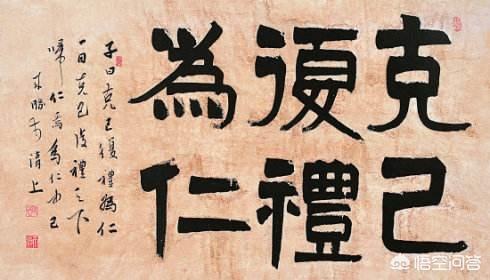 克己
復禮
為仁
子曰克己復禮為仁
一日克己復禮天下
歸仁焉為仁由己
悟空问答